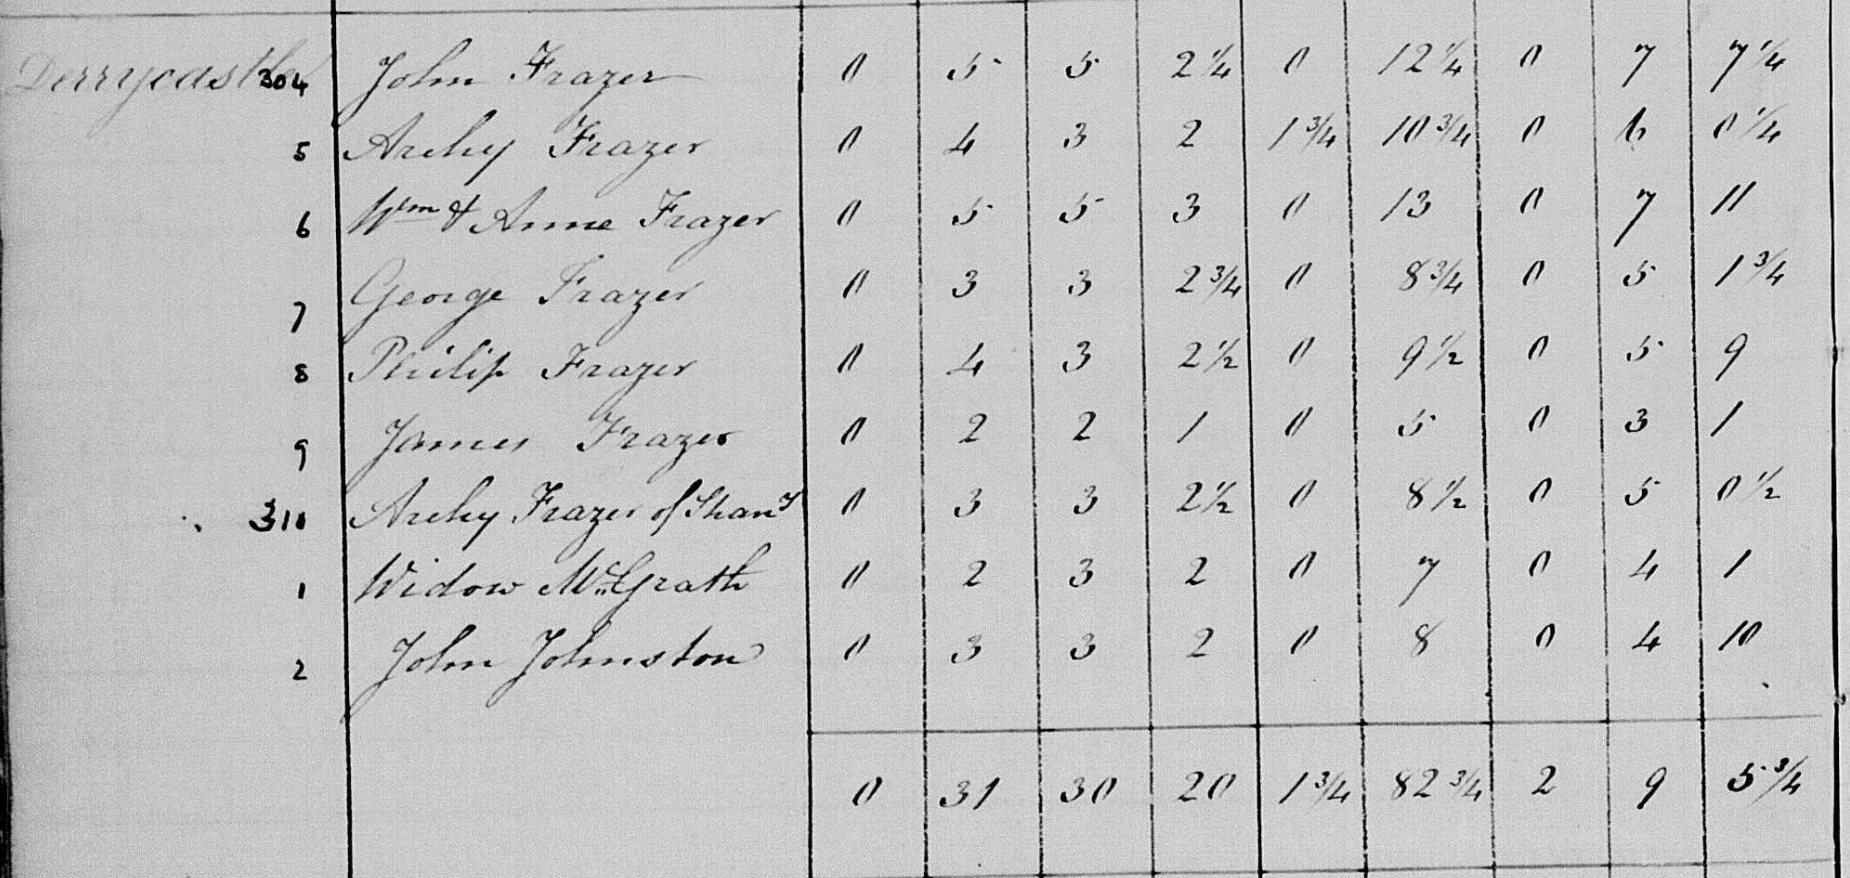 Derrycastle 304 John Frazer 0 5 5 2¼ 0 12¼ 0 7 7¼
5 Archy Frazer 0 4 3 2 1¾ 10¾ 0 6 0¼
6 Wm & Anne Frazer 0 5 5 3 0 13 0 7 11
7 George Frazer 0 3 3 2¾ 0 8¾ 0 5 1¾
8 Philip Frazer 0 4 3 2½ 0 9½ 0 5 9
9 James Frazer 0 2 2 1 0 5 0 3 1
310 Archy Frazer of 0 3 3 2½ 0 8½ 0 5 0½
1 Widow McGrath 0 2 3 2 0 7 0 4 1
2 John Johnston 0 3 3 2 0 8 0 4 10
0 31 30 20 1¾ 82¾ 2 9 5¾